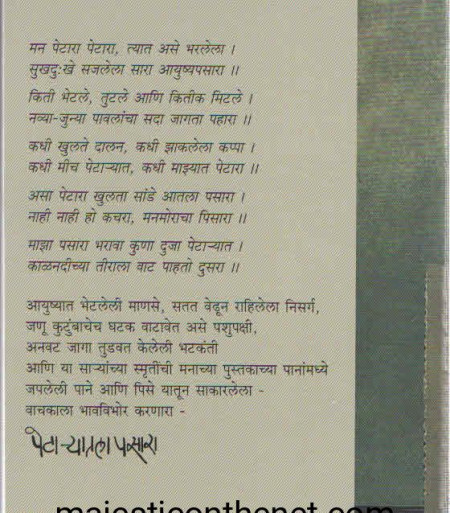 मन पेटारा पेटारा, त्यात असे भरलेला ।
सुखदुःखे सजलेला सारा आयुष्यपसारा ॥
किती भेटले, तुटले आणि कितीक मिटले ।
नव्या-जुन्या पावलांचा सदा जागता पहारा ॥
कधी खुलते दालन, कधी झाकलेला कप्पा ।
कधी मीच पेटाऱ्यात, कधी माझ्यात पेटारा ॥
असा पेटारा खुलता सांडे आतला पसारा ।
नाही नाही हो कचरा, मनमोराचा पिसारा ॥
माझा पसारा भरावा कुणा दुजा पेटाऱ्यात ।
काळनदीच्या तीराला वाट पाहतो दुसरा ॥
आयुष्यात भेटलेली माणसे, सतत वेढून राहिलेला निसर्ग,
जणू कुटुंबाचेच घटक वाटावेत असे पशुपक्षी,
अनवट जागा तुडवत केलेली भटकंती
आणि या साऱ्यांच्या स्मृतींची मनाच्या पुस्तकाच्या पानांमध्ये
जपलेली पाने आणि पिसे यातून साकारलेला -
वाचकाला भावविभोर करणारा -
पेटाऱ्यातला पसारा
majesticonthenet.com